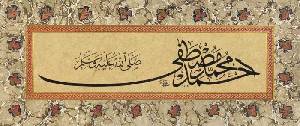 محمد مصطفى صلى الله عليه وسلم